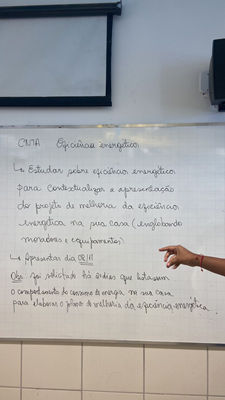 CNTA Eficiência energética
↳ Estudar sobre eficiência energética
para contextualizar a apresentação
do projeto de melhoria da eficiência
energética na sua casa (englobando
moradores e equipamentos)
↳ Apresentar dia 08/11
Obs: foi solicitado há que listassem
o comportamento do consumo de energia na sua casa
para elaborar o plano de melhoria da eficiência energética.